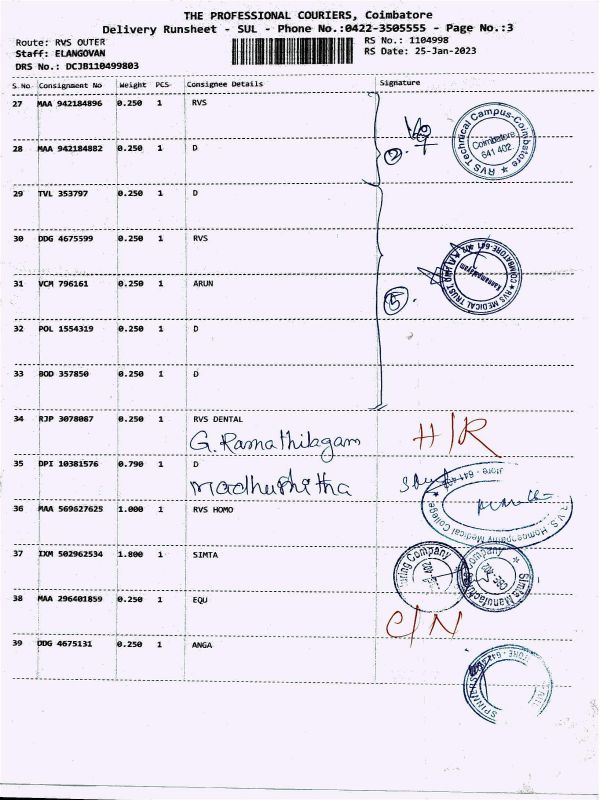 THE PROFESSIONAL COURIERS, Coimbatore
Delivery Runsheet - SUL - Phone No.:0422-3505555 - Page No.:3
Route: RVS OUTER
RS No.: 1104998
Staff: ELANGOVAN
RS Date: 25-Jan-2023
DRS No.: DCJB110499803
S.No Consignment No Weight PCS Consignee Details Signature
27 MAA 942184896 0.250 1 RVS
RVS Technical Campus-Coimbatore
Coimbatore
641 402
28 MAA 942184882 0.250 1 D
2
29 TVL 353797 0.250 1 D
30 DDG 4675599 0.250 1 RVS
RVS MEDICAL TRUST
COIMBATORE-641 402
Kannampalayam
31 VCM 796161 0.250 1 ARUN
5
32 POL 1554319 0.250 1 D
33 BOD 357850 0.250 1 D
34 RJP 3078087 0.250 1 RVS DENTAL
G. Ramathilagam H/R
35 DPI 10381576 0.790 1 D
Madhushitha
R.V.S. Homoeopathy Medical College
36 MAA 569627625 1.000 1 RVS HOMO
37 IXM 502962534 1.800 1 SIMTA
Company
Simta Manufacturing Company
38 MAA 296401859 0.250 1 EQU
C/N
39 DDG 4675131 0.250 1 ANGA